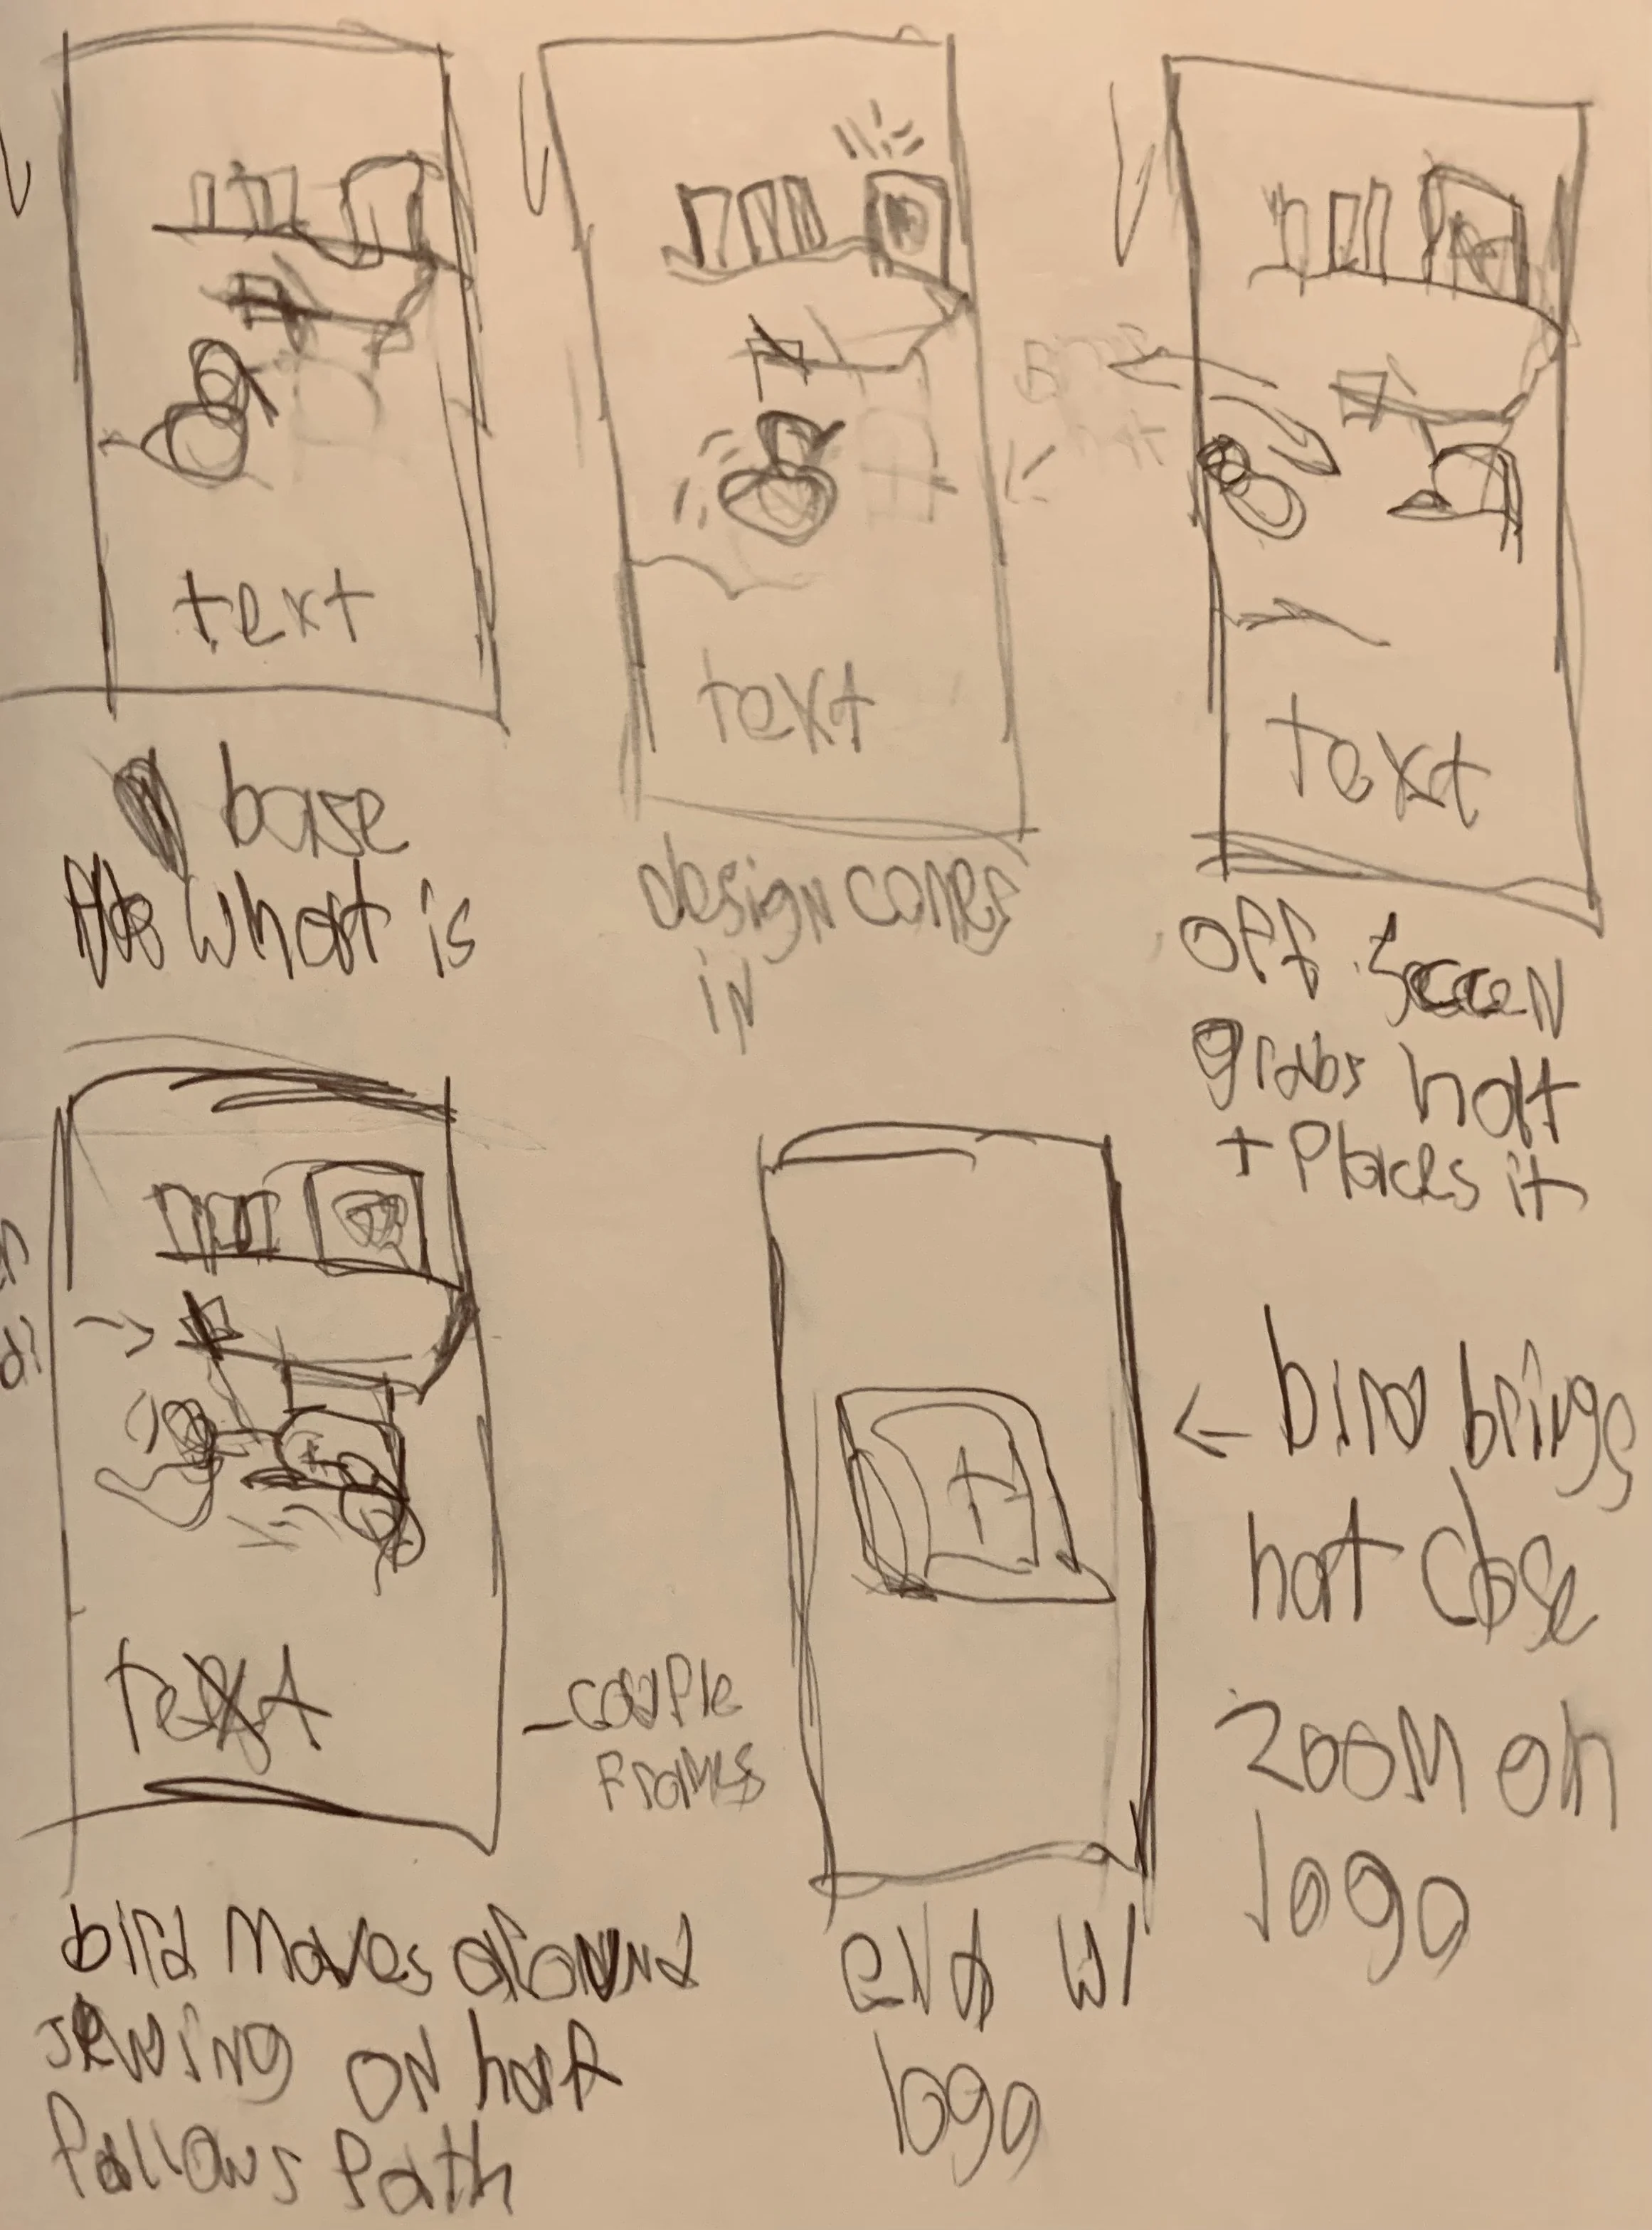 text
base
what is
text
design comes
in
text
off screen
grabs hat
+ Places it
text
- couple
frames
bird moves around
sewing on hat
follows path
end w/
logo
← bird brings
hat close
zoom on
logo